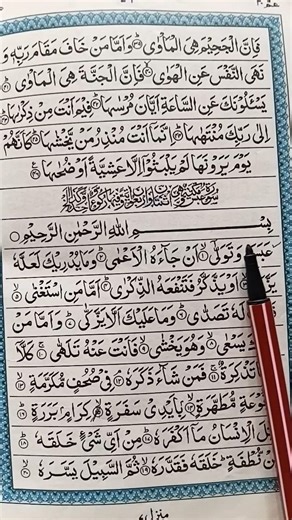 فَاِنَّ الْجَحِيْمَ هِيَ الْمَاْوٰى ۳۹ وَاَمَّا مَنْ خَافَ مَقَامَ رَبِّهٖ وَ
نَهَى النَّفْسَ عَنِ الْهَوٰى ۴۰ فَاِنَّ الْجَنَّةَ هِيَ الْمَاْوٰى ۴۱
يَسْـَٔلُوْنَكَ عَنِ السَّاعَةِ اَيَّانَ مُرْسٰىهَا ۴۲ فِيْمَ اَنْتَ مِنْ ذِكْرٰىهَا ۴۳
اِلٰى رَبِّكَ مُنْتَهٰىهَا ۴۴ اِنَّمَاۤ اَنْتَ مُنْذِرُ مَنْ يَّخْشٰىهَا ۴۵ كَاَنَّهُمْ
يَوْمَ يَرَوْنَهَا لَمْ يَلْبَثُوْۤا اِلَّا عَشِيَّةً اَوْ ضُحٰىهَا ۴۶
بِسْمِ اللّٰهِ الرَّحْمٰنِ الرَّحِيْمِ
عَبَسَ وَتَوَلّٰى ۱ اَنْ جَآءَهُ الْاَعْمٰى ۲ وَمَا يُدْرِيْكَ لَعَلَّهٗ
اَوْ يَذَّكَّرُ فَتَنْفَعَهُ الذِّكْرٰى ۴ اَمَّا مَنِ اسْتَغْنٰى ۵
لَهٗ تَصَدّٰى ۶ وَمَا عَلَيْكَ اَلَّا يَزَّكّٰى ۷ وَاَمَّا مَنْ
يَسْعٰى ۸ وَهُوَ يَخْشٰى ۹ فَاَنْتَ عَنْهُ تَلَهّٰى ۱۰ كَلَّاۤ
تَذْكِرَةٌ ۱۱ فَمَنْ شَآءَ ذَكَرَهٗ ۱۲ فِيْ صُحُفٍ مُّكَرَّمَةٍ ۱۳
مُّطَهَّرَةٍۭ ۱۴ بِاَيْدِيْ سَفَرَةٍ ۱۵ كِرَامٍۭ بَرَرَةٍ ۱۶
الْاِنْسَانُ مَاۤ اَكْفَرَهٗ ۱۷ مِنْ اَيِّ شَيْءٍ خَلَقَهٗ ۱۸
مِنْ نُّطْفَةٍ خَلَقَهٗ فَقَدَّرَهٗ ۱۹ ثُمَّ السَّبِيْلَ يَسَّرَهٗ ۲۰
منزل